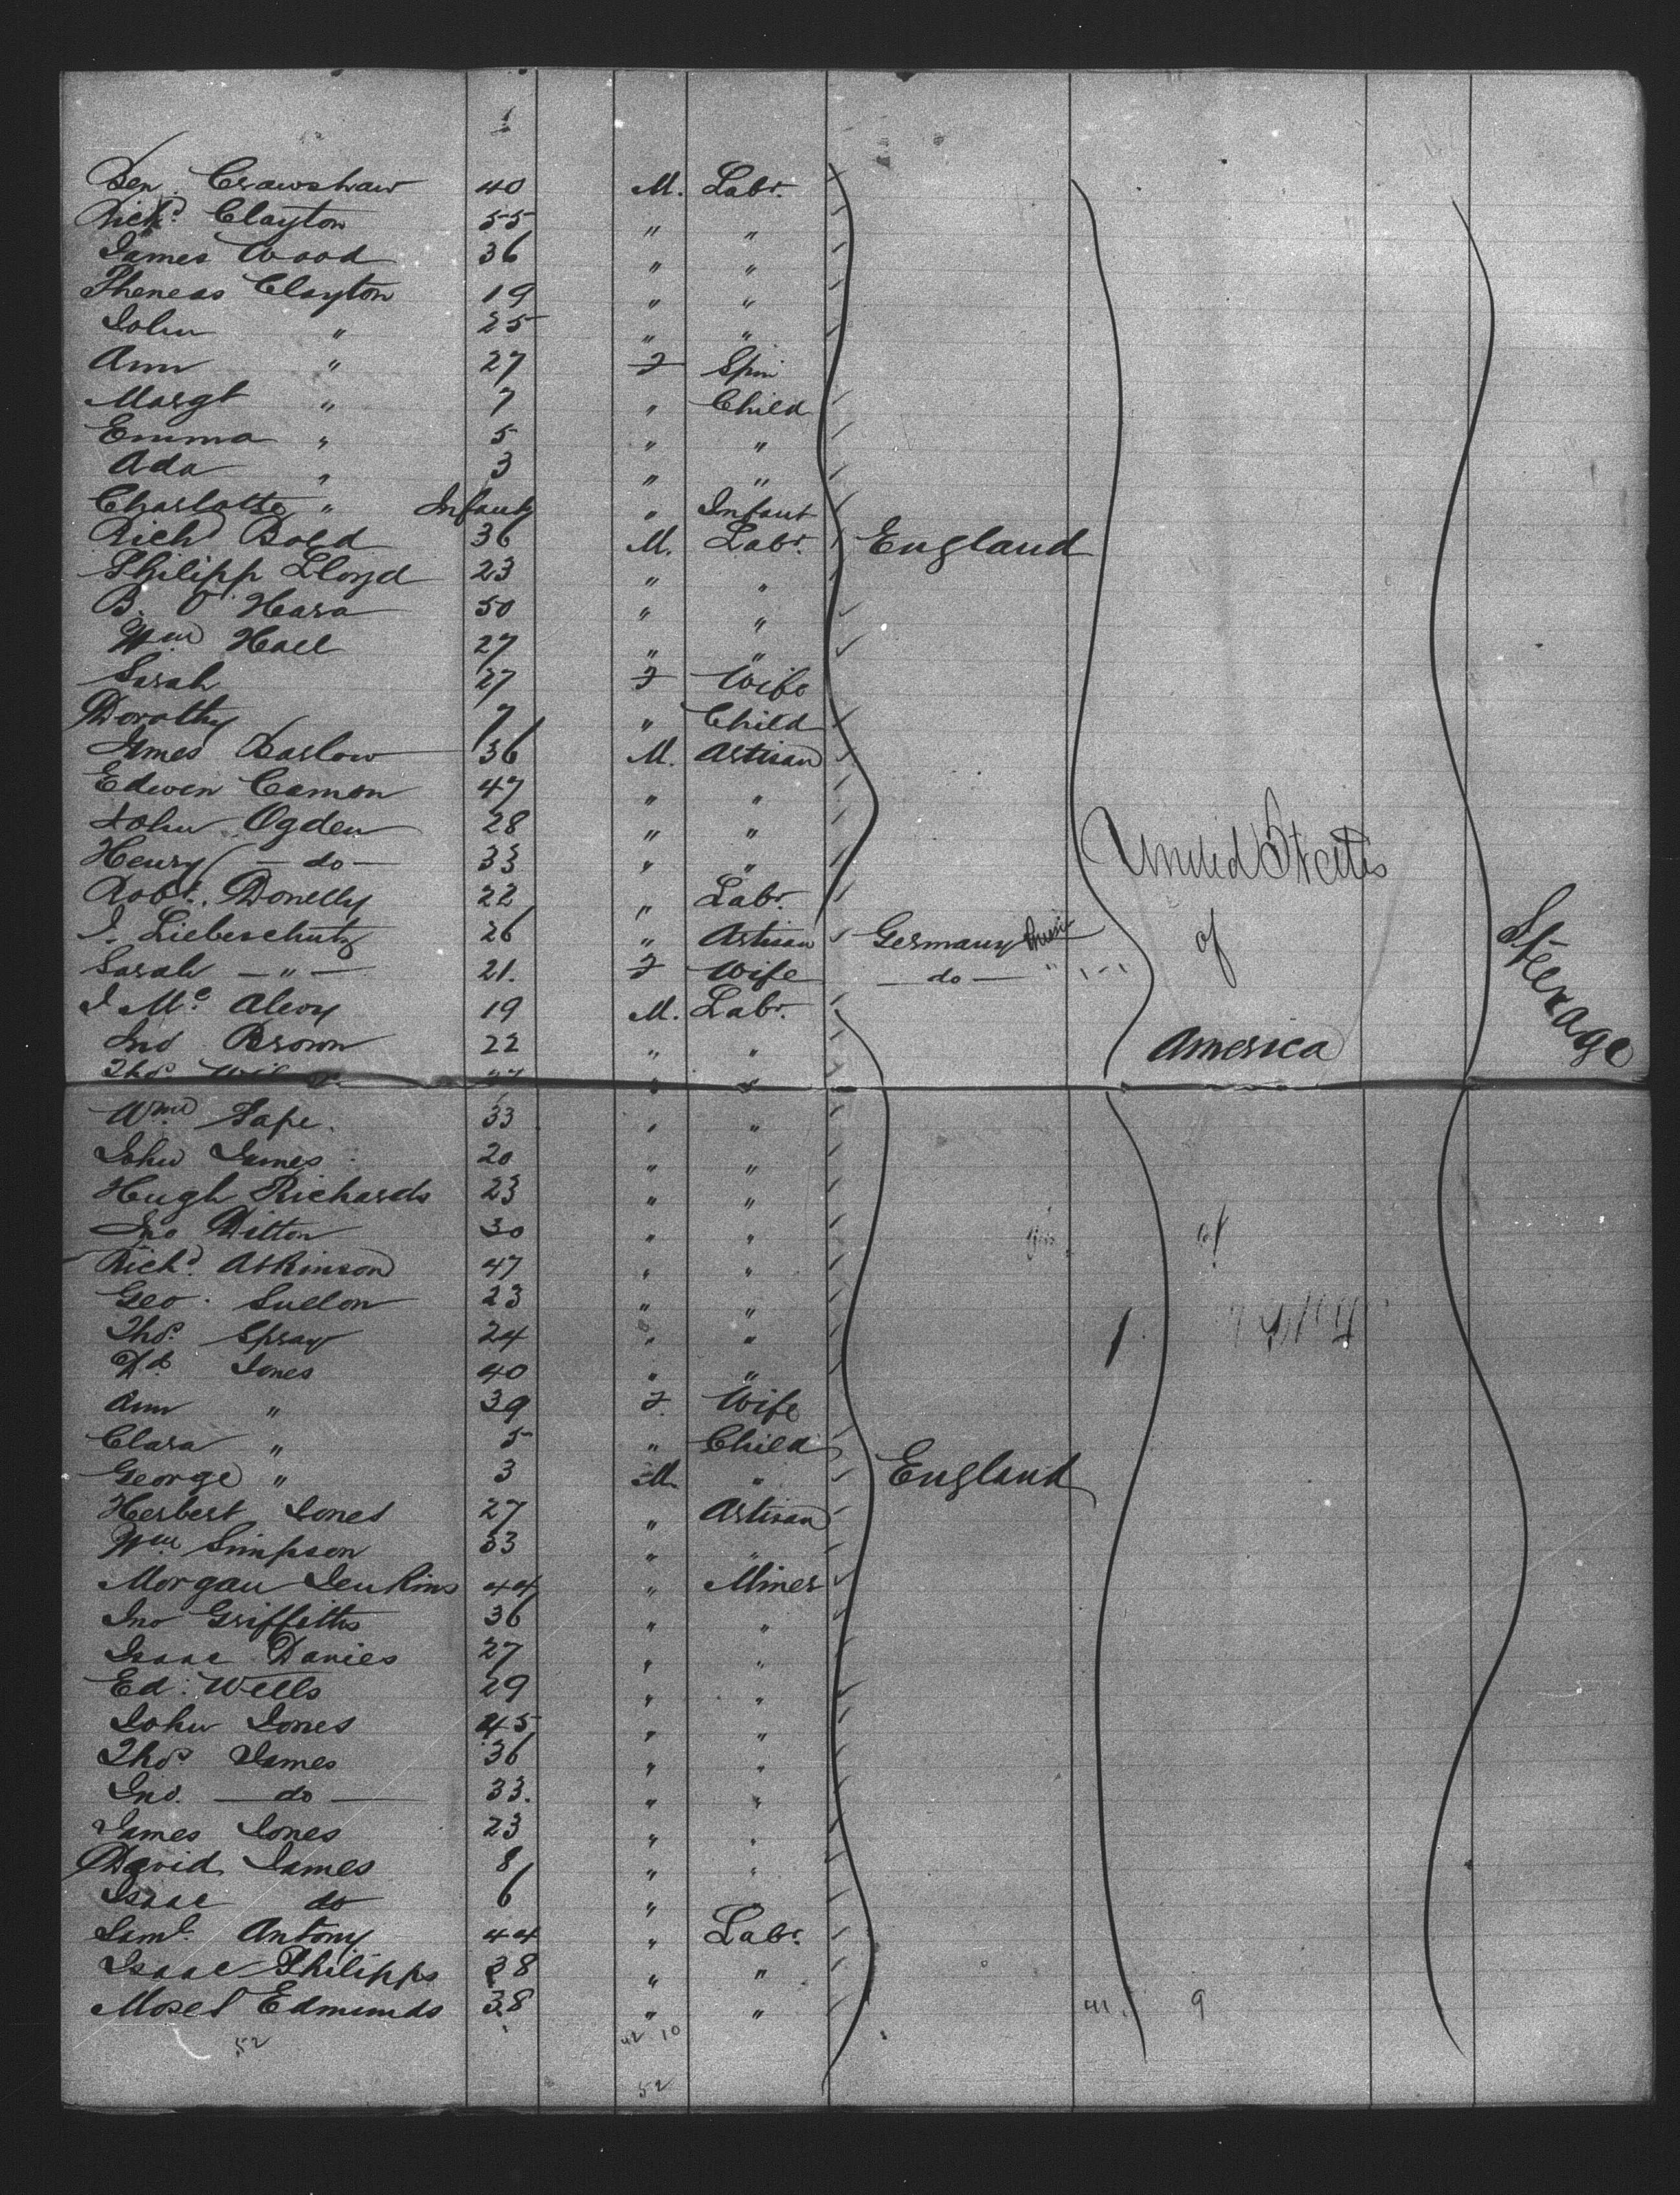 Ben. Crawshaw 40 M. Labr.
Richd. Clayton 55 " "
James Wood 36 " "
Pheneas Clayton 19 " "
John " 25 " "
Ann " 27 F Spin
Margt " 7 " Child
Emma " 5 " "
Ada " 3 " "
Charlotte " Infant " Infant
Richd Bold 36 M. Labr. England
Philipp Lloyd 23 " "
B. O'Hara 50 " "
Wm Hall 27 " "
Sarah 27 F Wife
Dorothy 7 " Child
James Barlow 36 M. Artisan
Edwin Camon 47 " "
John Ogden 28 " "
Henry — do — 33 " " United States
Robt. Donelly 22 " Labr.
I. Lieberschutz 26 " Artisan Germany of
Sarah — " — 21. F Wife — do — " Steerage
J Mc Alevy 19 M. Labr.
Jno Brown 22 " " America
Thos. " "
Wm. Pape. 33 " "
John James 20 " "
Hugh Richards 23 " "
Jno Ditton 30 " "
Richd. Atkinson 47 " "
Geo. 23 " "
Thos. Spray 24 " "
Dd. Jones 40 " "
Ann " 39 F. Wife
Clara " 5 " Child
George " 3 M. " England
Herbert Jones 27 " Artisan
Wm Simpson 33 " "
Morgan Jenkins 44 " Miner
Jno Griffiths 36 " "
Isaac Davies 27 " "
Ed. Wells 29 " "
John Jones 45 " "
Thos James 36 " "
Jno. — do — 33. " "
James Jones 23 " "
David James 8 " "
Isaac do 6 "
Saml. Antony 44 " Labr.
Isaac Philipps 38 " "
Moses Edmunds 38 " " 9
52 42 10
52